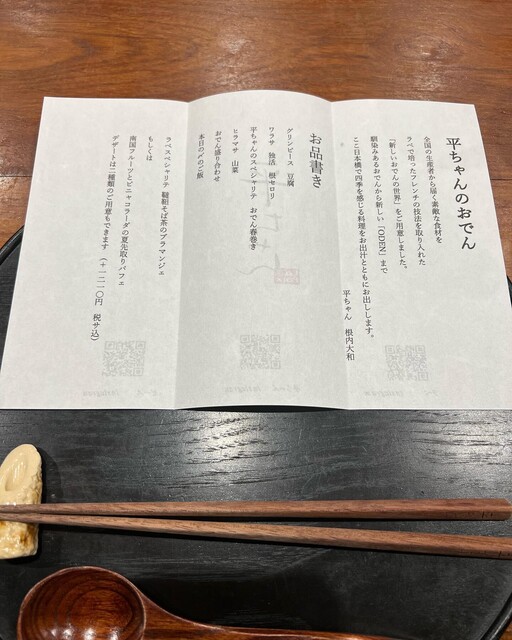 平ちゃんのおでん
全国の生産者から届く素敵な食材を
ラペで培ったフレンチの技法を取り入れた
「新しいおでんの世界」をご用意しました。
馴染みあるおでんから新しい「ODEN」まで
ここ日本橋で四季を感じる料理をお出汁とともにお出しします。
平ちゃん 根内大和
お品書き
グリンピース 豆腐
ワラサ 独活 根セロリ
平ちゃんのスペシャリテ おでん春巻き
ヒラマサ 山菜
おでん盛り合わせ
本日の〆のご飯
ラペスペシャリテ 韃靼そば茶のブラマンジェ
もしくは
南国フルーツとピニャコラーダの夏先取りパフェ
デザートは二種類のご用意もできます (+一二一〇円 税サ込)